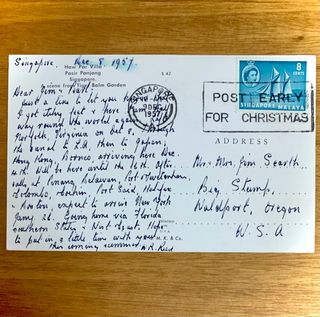 Singapore. Dec. 8, 1957.
Haw Par Villa
Pasir Panjang
Singapore.
A scene from Tiger Balm Garden
S 42
Dear Jim &
Just a line to let you know
I got itchy feet & here I am
way round the world again. Left
New York, Virginia on Oct 8, through
the canal to L.A. then to Japan,
Hong Kong, Borneo, arriving here Dec.
4th. Will be here until the 10th. After
calls at Penang, Belawan, Port Swettenham,
Colombo, Cochin, Port Said, Halifax
& Boston, expect to arrive New York
Jany 22. Going home via Florida
Southern States & West Coast. Hope
to put in a little time with you
this coming summer
K. & Co.
SINGAPORE
1957
8
CENTS
SINGAPORE MALAYA
POST EARLY
FOR CHRISTMAS
ADDRESS
Mr. & Mrs. Jim Searth
Big Stump,
Waldport, Oregon
U.S.A